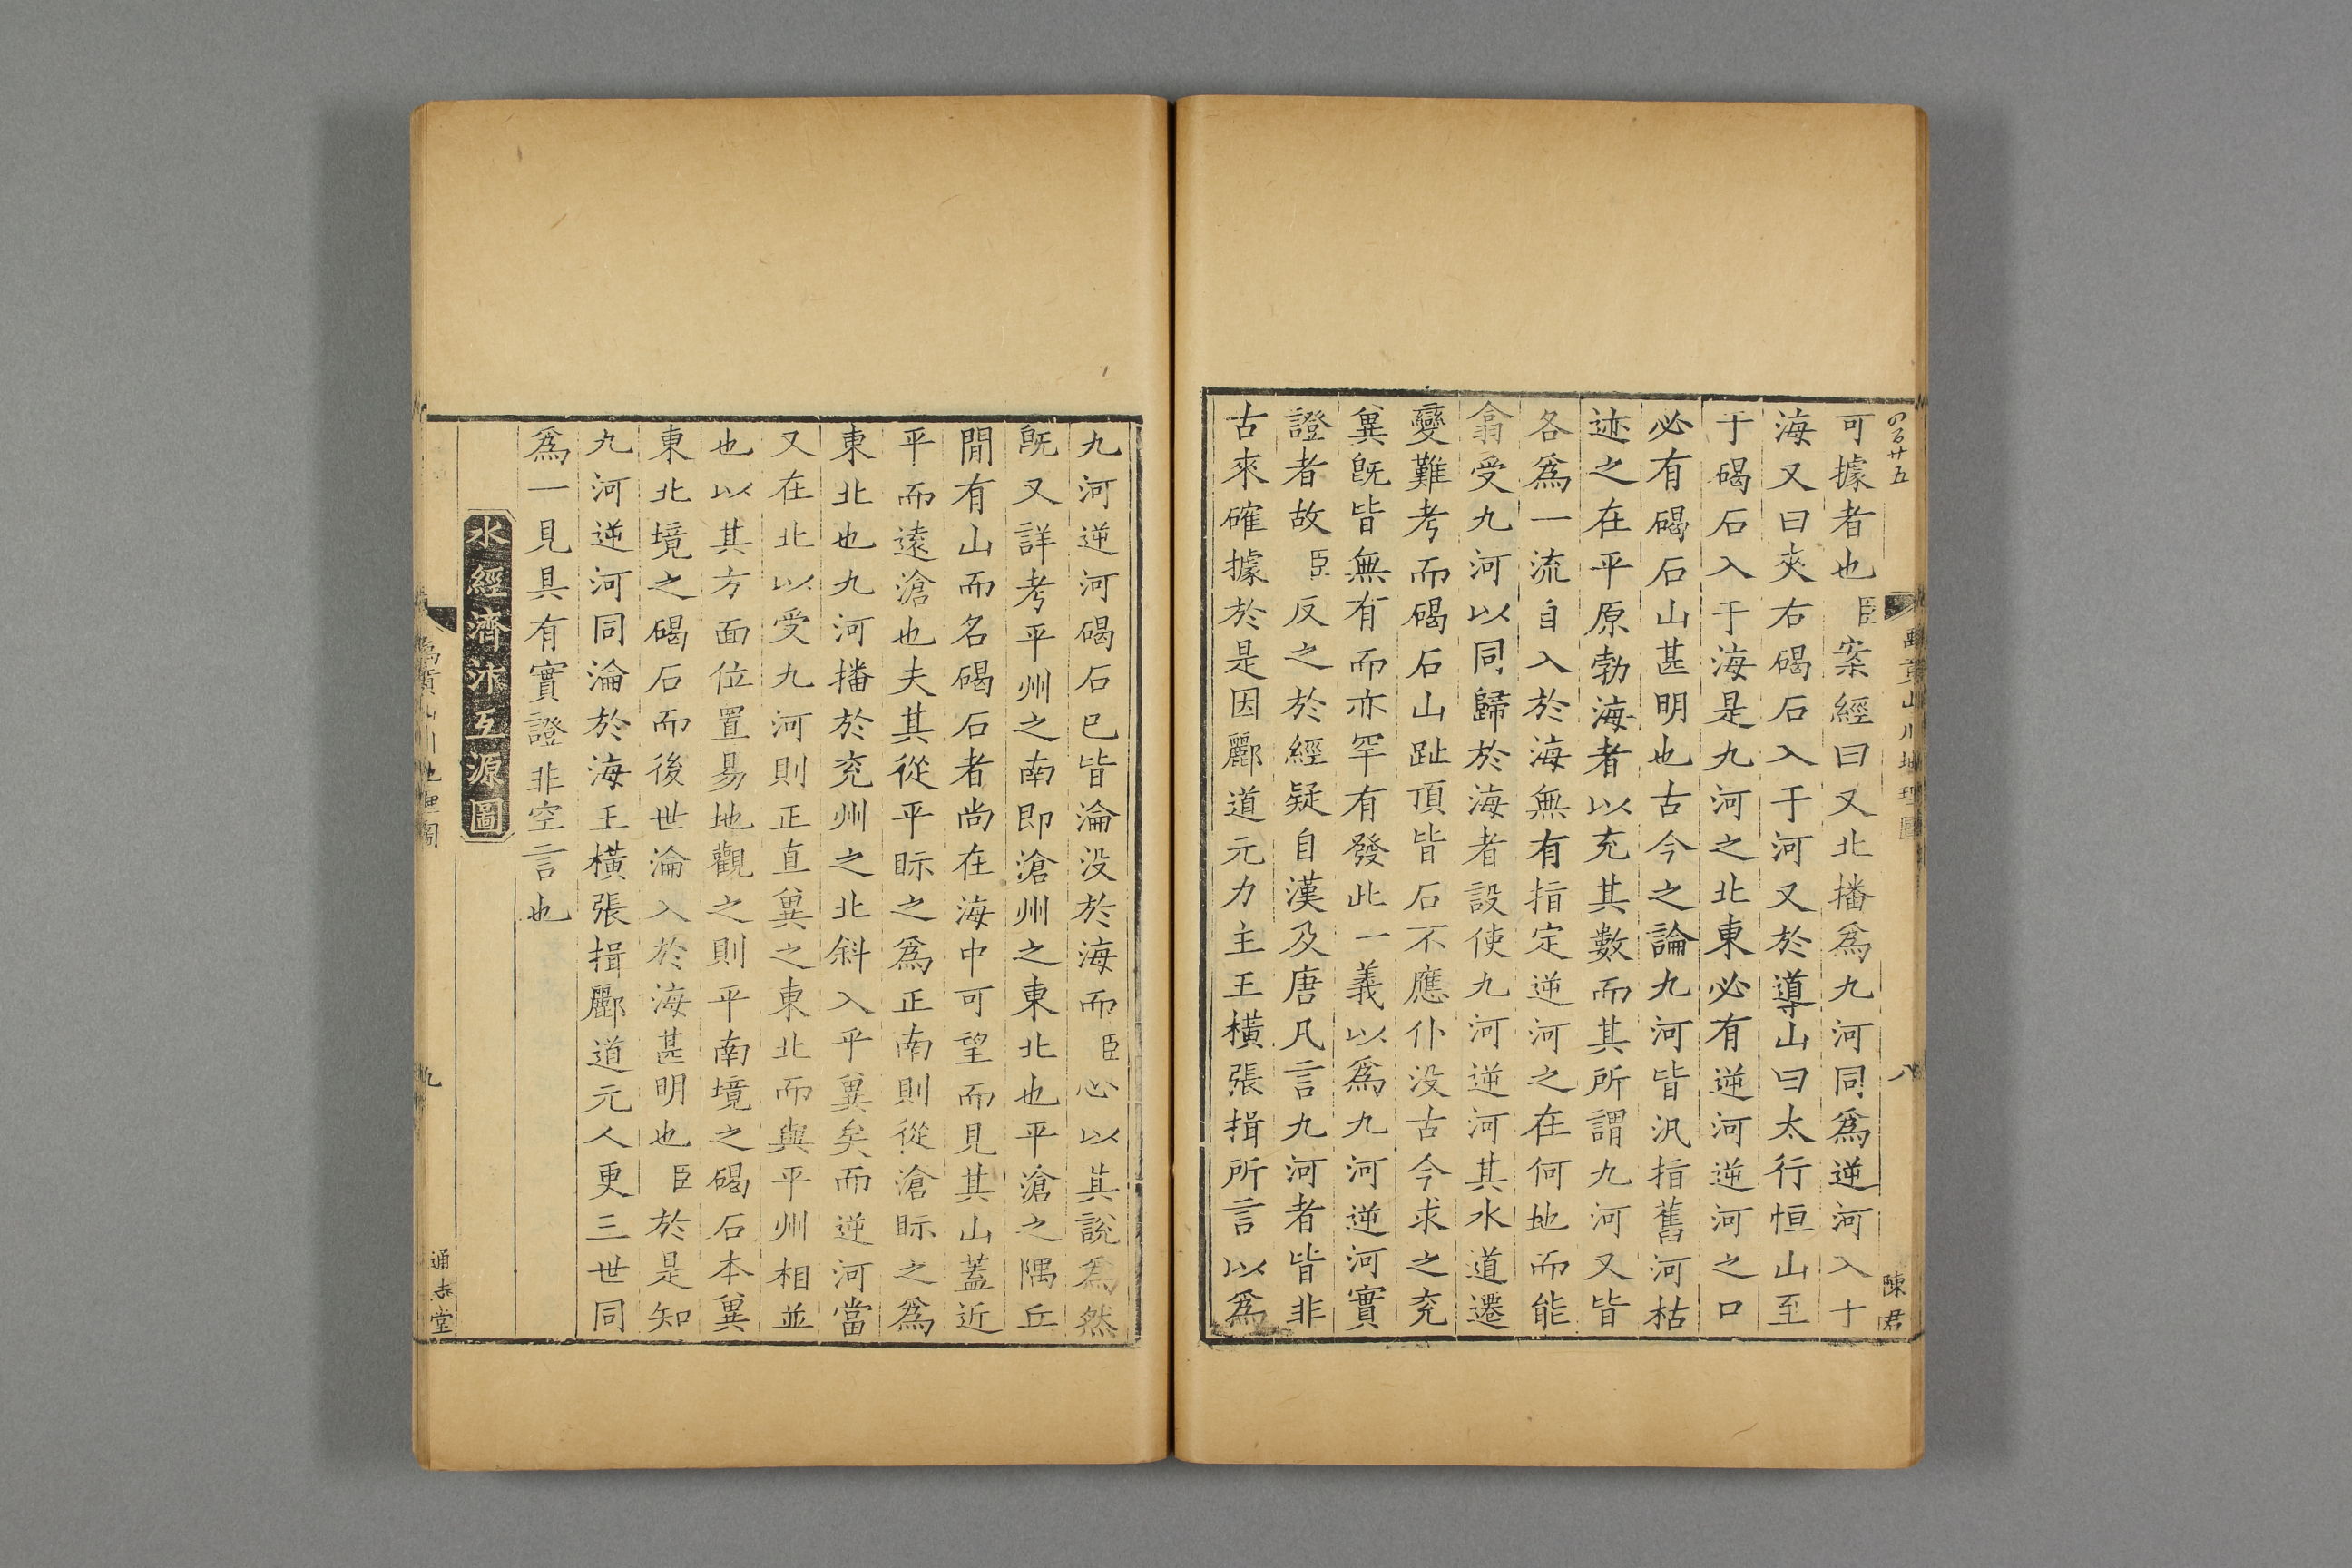 四百廿五
可據者也臣案經曰又北播爲九河同爲逆河入于
海又曰夾右碣石入于河又於導山曰太行恒山至
于碣石入于海是九河之北東必有逆河逆河之口
必有碣石山甚明也古今之論九河皆汎指舊河枯
迹之在平原勃海者以充其數而其所謂九河又皆
各爲一流自入於海無有指定逆河之在何地而能
翕受九河以同歸於海者設使九河逆河其水道遷
變難考而碣石山趾頂皆石不應仆没古今求之兖
兾旣皆無有而亦罕有發此一義以爲九河逆河實
證者故臣反之於經疑自漢及唐凡言九河者皆非
古來確據於是因酈道元力主王橫張揖所言以爲
禹貢山川地理圖
八
陳君
九河逆河碣石已皆淪没於海而臣必以其說爲然
旣又詳考平州之南即滄州之東北也平滄之隅丘
閒有山而名碣石者尚在海中可望而見其山蓋近
平而遠滄也夫其從平眎之爲正南則從滄眎之爲
東北也九河播於兖州之北斜入乎兾矣而逆河當
又在北以受九河則正直兾之東北而與平州相並
也以其方面位置易地觀之則平南境之碣石本兾
東北境之碣石而後世淪入於海甚明也臣於是知
九河逆河同淪於海王橫張揖酈道元人更三世同
爲一見具有實證非空言也
水經濟汴互源圖
禹貢山川地理圖
九
通志堂